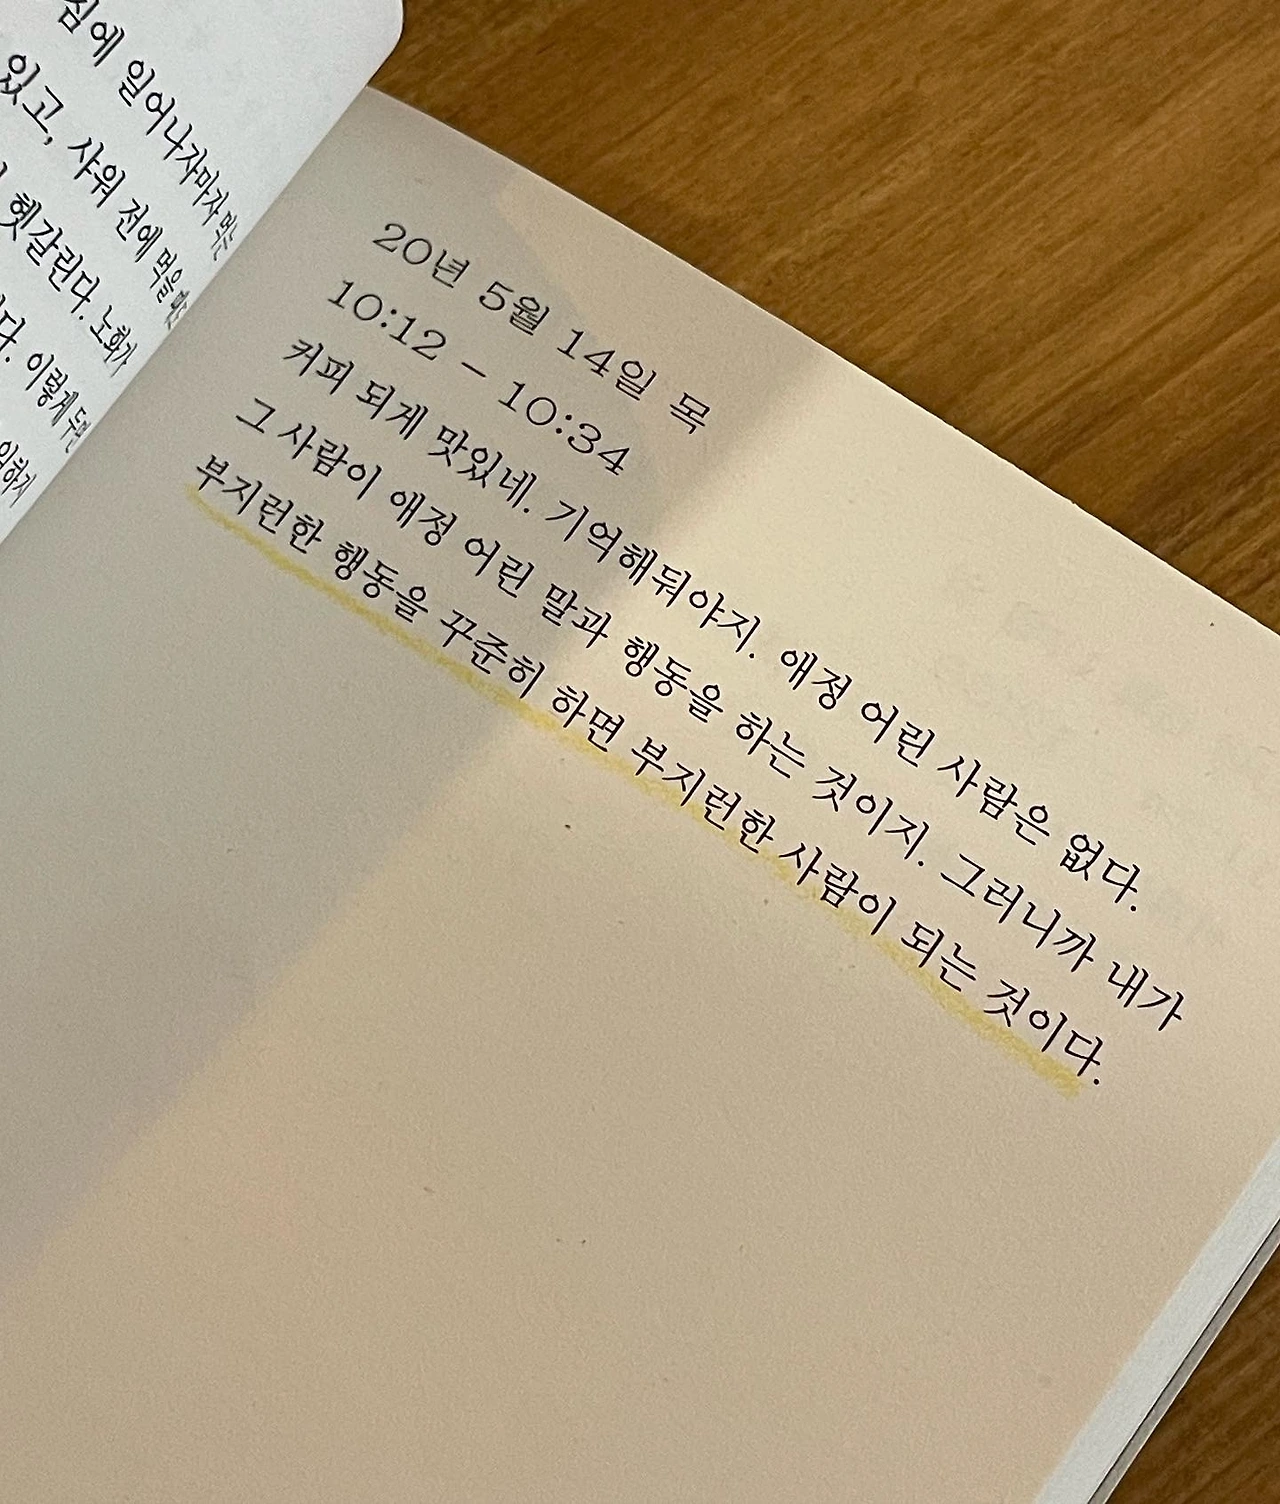 침에 일어나자마자 먹는
있고, 샤워 전에 먹을
헷갈린다. 노화가
다. 이렇게
20년 5월 14일 목
10:12 – 10:34
커피 되게 맛있네. 기억해둬야지. 애정 어린 사람은 없다.
그 사람이 애정 어린 말과 행동을 하는 것이지. 그러니까 내가
부지런한 행동을 꾸준히 하면 부지런한 사람이 되는 것이다.